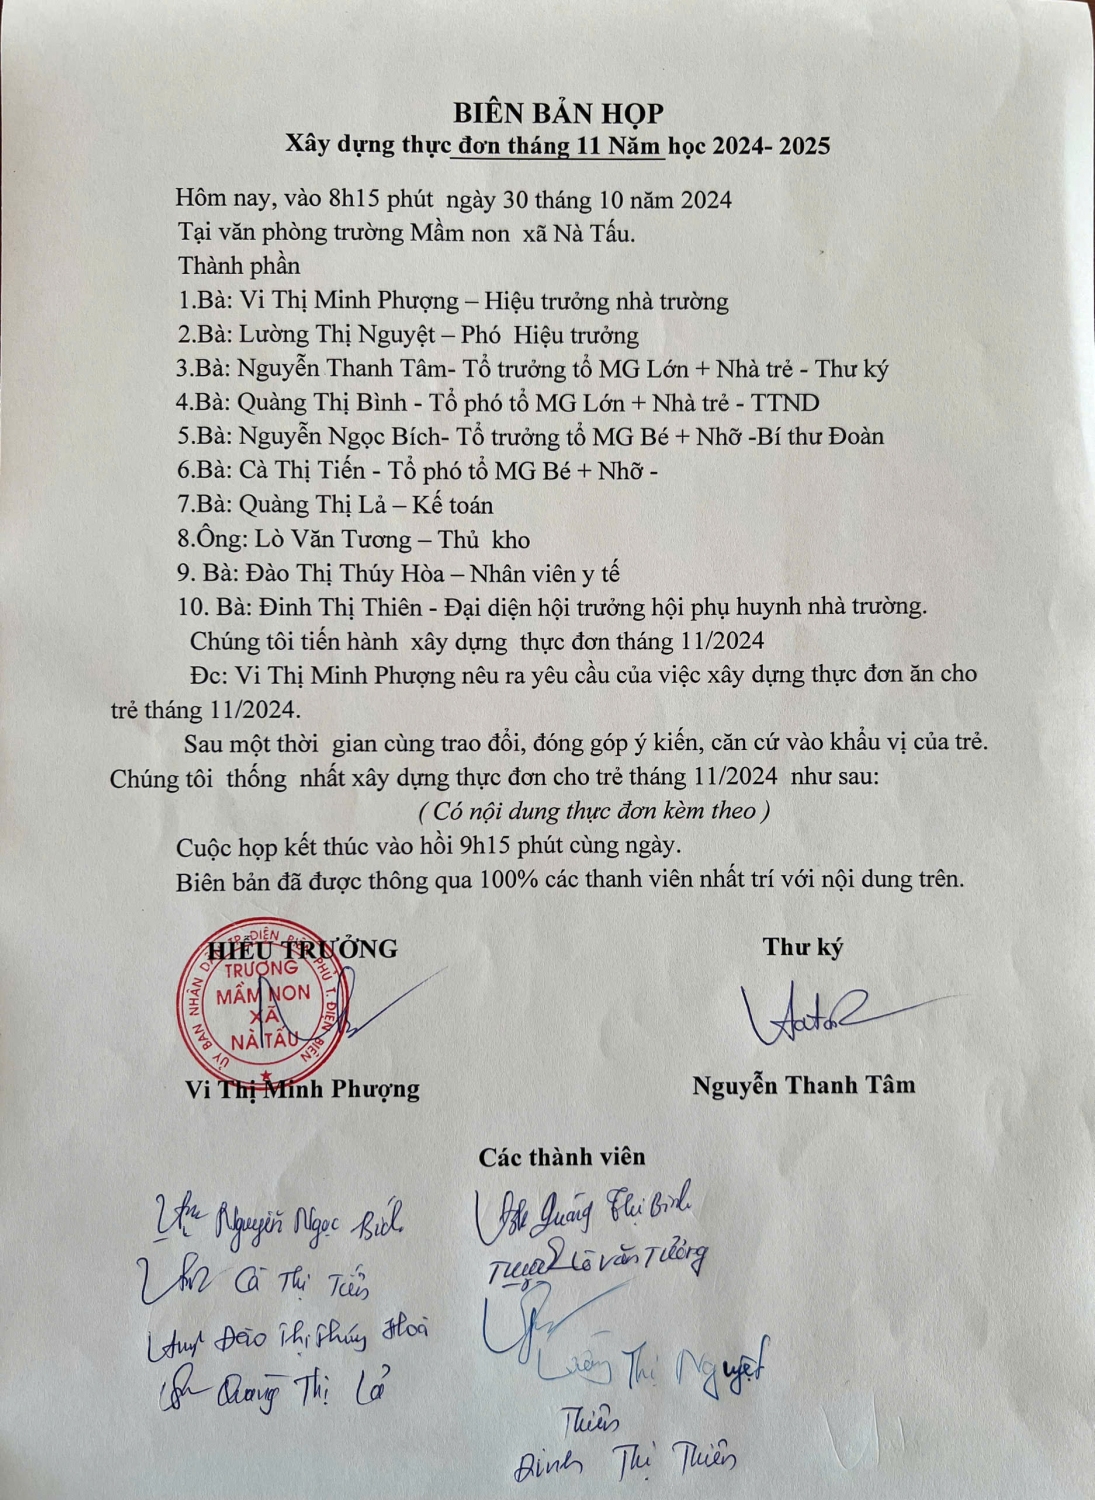 BIÊN BẢN HỌP
Xây dựng thực đơn tháng 11 Năm học 2024- 2025
Hôm nay, vào 8h15 phút ngày 30 tháng 10 năm 2024
Tại văn phòng trường Mầm non xã Nà Tấu.
Thành phần
1.Bà: Vi Thị Minh Phượng – Hiệu trưởng nhà trường
2.Bà: Lường Thị Nguyệt – Phó Hiệu trưởng
3.Bà: Nguyễn Thanh Tâm- Tổ trưởng tổ MG Lớn + Nhà trẻ - Thư ký
4.Bà: Quàng Thị Bình - Tổ phó tổ MG Lớn + Nhà trẻ - TTND
5.Bà: Nguyễn Ngọc Bích- Tổ trưởng tổ MG Bé + Nhỡ -Bí thư Đoàn
6.Bà: Cà Thị Tiến - Tổ phó tổ MG Bé + Nhỡ -
7.Bà: Quàng Thị Lả – Kế toán
8.Ông: Lò Văn Tương – Thủ kho
9. Bà: Đào Thị Thúy Hòa – Nhân viên y tế
10. Bà: Đinh Thị Thiên - Đại diện hội trưởng hội phụ huynh nhà trường.
Chúng tôi tiến hành xây dựng thực đơn tháng 11/2024
Đc: Vi Thị Minh Phượng nêu ra yêu cầu của việc xây dựng thực đơn ăn cho
trẻ tháng 11/2024.
Sau một thời gian cùng trao đổi, đóng góp ý kiến, căn cứ vào khẩu vị của trẻ.
Chúng tôi thống nhất xây dựng thực đơn cho trẻ tháng 11/2024 như sau:
( Có nội dung thực đơn kèm theo )
Cuộc họp kết thúc vào hồi 9h15 phút cùng ngày.
Biên bản đã được thông qua 100% các thanh viên nhất trí với nội dung trên.
HIỆU TRƯỞNG
Thư ký
ỦY BAN NHÂN DÂN TP ĐIỆN BIÊN PHỦ T. ĐIỆN BIÊN
TRƯỜNG
MẦM NON
XÃ
NÀ TẤU
Vi Thị Minh Phượng
Nguyễn Thanh Tâm
Các thành viên
Nguyễn Ngọc Bích
Quàng Thị Bình
Cà Thị Tiến
Lò Văn Tường
Đào Thị Thúy Hoà
Lường Thị Nguyệt
Quàng Thị Lả
Thiên
Đinh Thị Thiên